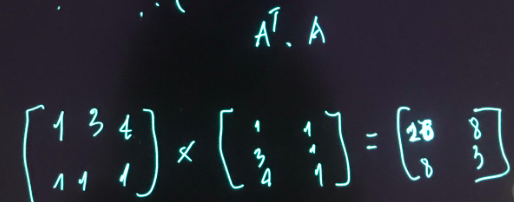 Aᵀ. A
[1 3 4
1 1 1] × [1 1
3 1
4 1] = [26 8
8 3]